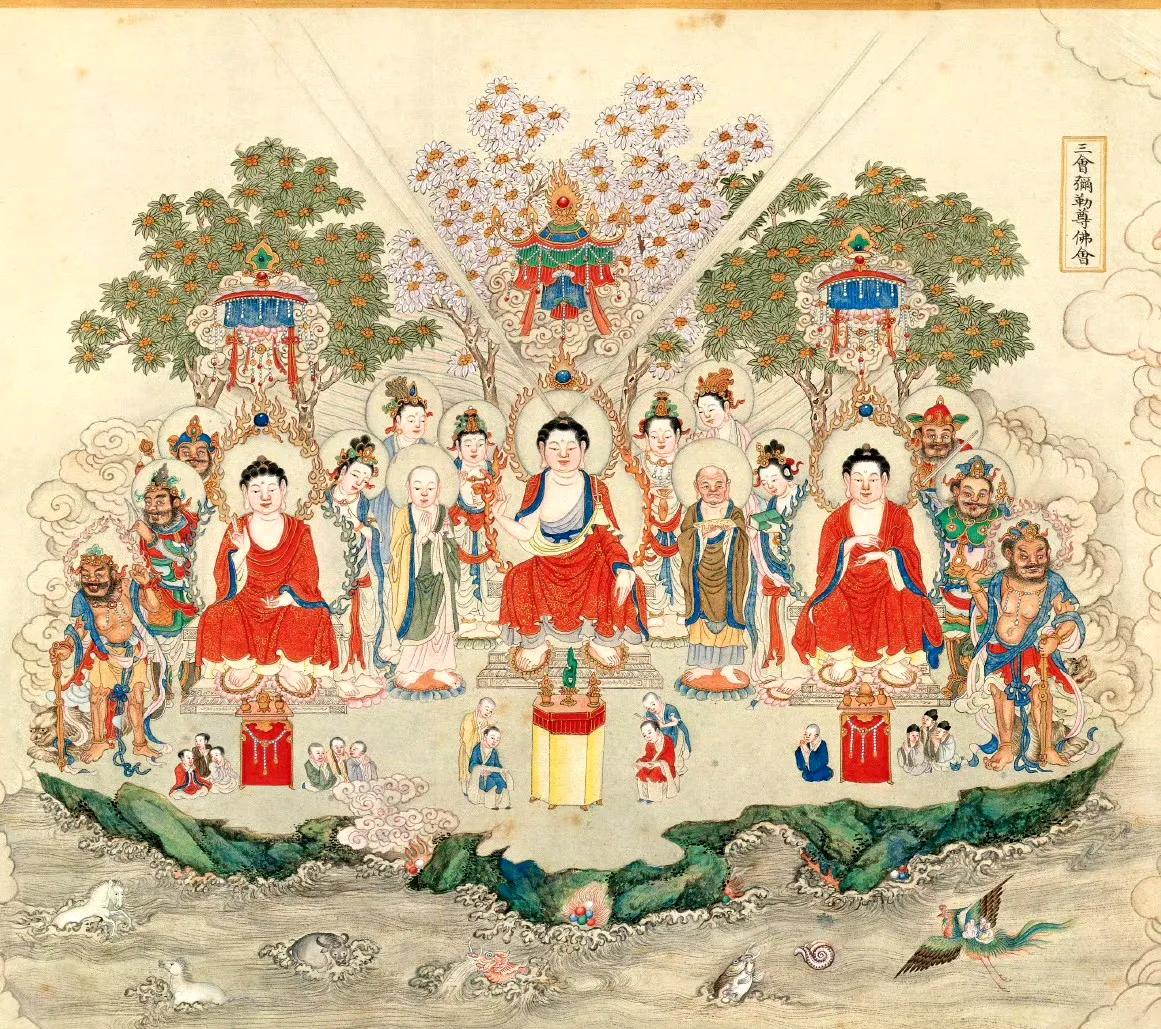 三會彌勒尊佛會